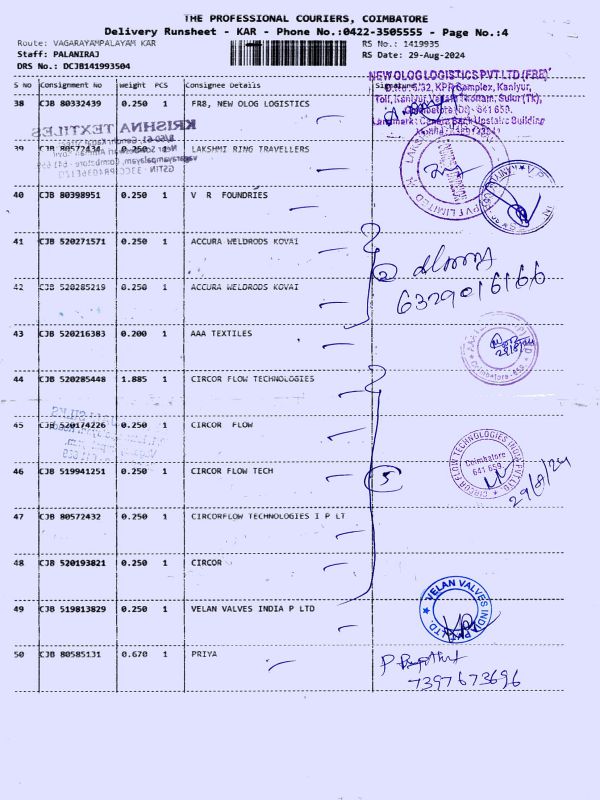 THE PROFESSIONAL COURIERS, COIMBATORE
Delivery Runsheet - KAR - Phone No.:0422-3505555 - Page No.:4
Route: VAGARAYAMPALAYAM KAR
RS No.: 1419935
Staff: PALANIRAJ
RS Date: 29-Aug-2024
DRS No.: DCJB141993504
S NO Consignment No Weight PCS Consignee Details
NEW OLOG LOGISTICS PVT LTD (FRE)
38 CJB 80332439 0.250 1 FR8, NEW OLOG LOGISTICS
KRISHNA TEXTILES
39 CJB 80572434 0.250 1 LAKSHMI RING TRAVELLERS
40 CJB 80398951 0.250 1 V R FOUNDRIES
41 CJB 520271571 0.250 1 ACCURA WELDRODS KOVAI
2
6329016166
42 CJB 520285219 0.250 1 ACCURA WELDRODS KOVAI
43 CJB 520216383 0.200 1 AAA TEXTILES
Coimbatore-659
44 CJB 520285448 1.885 1 CIRCOR FLOW TECHNOLOGIES
45 CJB 520174226 0.250 1 CIRCOR FLOW
CIRCOR FLOW TECHNOLOGIES INDIA PVT LTD
Coimbatore
641 659.
46 CJB 519941251 0.250 1 CIRCOR FLOW TECH
5
29/8/24
47 CJB 80572432 0.250 1 CIRCORFLOW TECHNOLOGIES I P LT
48 CJB 520193821 0.250 1 CIRCOR
49 CJB 519813829 0.250 1 VELAN VALVES INDIA P LTD
VELAN VALVES INDIA PVT LTD.
50 CJB 80585131 0.670 1 PRIYA
7397673696